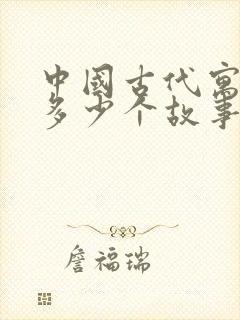 中國古代寓
多少个故事
詹福瑞